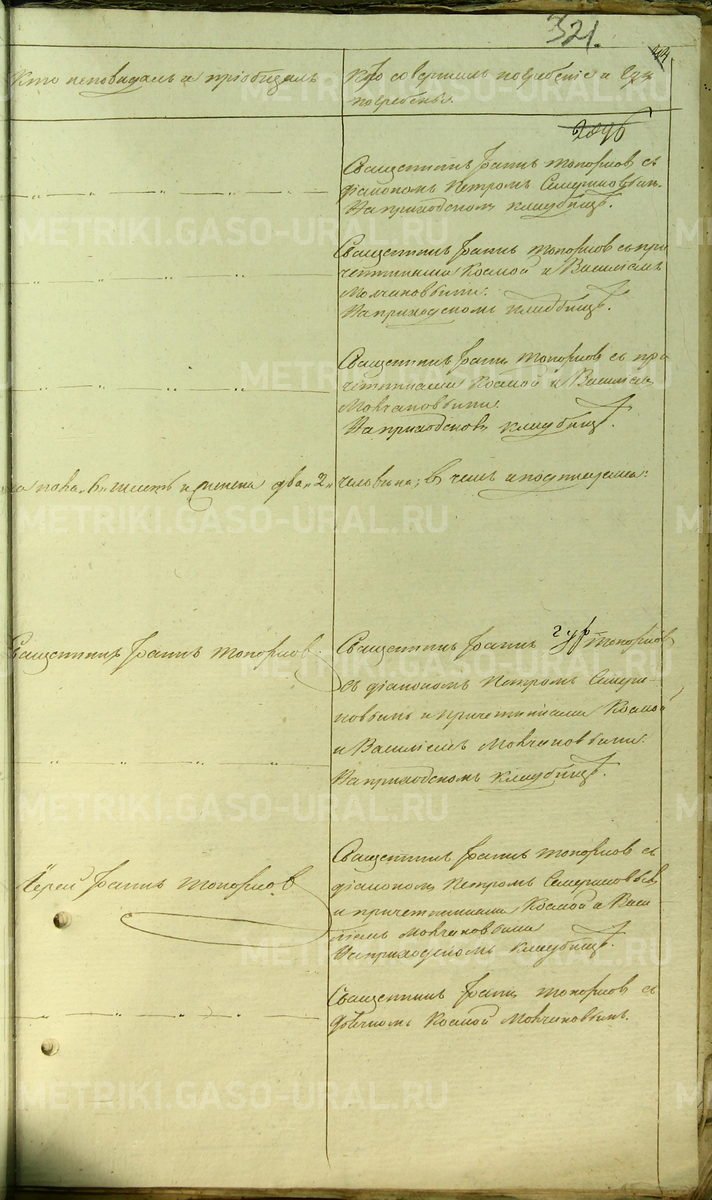 321.
Кто исповѣдалъ и пріобщалъ
Кто совершилъ погребеніе и гдѣ
погребены.
Священникъ Іоаннъ Топорковъ съ
діакономъ Петромъ
На приходскомъ кладбищѣ.
Священникъ Іоаннъ Топорковъ съ при
четниками Космой и Василіемъ
Молчановыми.
На приходскомъ кладбищѣ.
Священникъ Іоаннъ Топорковъ съ при
четниками Космой и Василіемъ
Молчановыми.
На приходскомъ кладбищѣ.
два „2„ человѣка; въ чемъ и
Священникъ Іоаннъ Топорковъ.
Священникъ Іоаннъ Топорковъ
съ діакономъ Петромъ
и причетниками Космой
и Василіемъ Молчановыми.
На приходскомъ кладбищѣ.
Іерей Іоаннъ Топорковъ
Священникъ Іоаннъ Топорковъ съ
діакономъ Петромъ
и причетниками Космой и Васи
ліемъ Молчановыми
На приходскомъ кладбищѣ.
Священникъ Іоаннъ Топорковъ съ
дьячкомъ Космой Молчановымъ.
METRIKI.GASO-URAL.RU